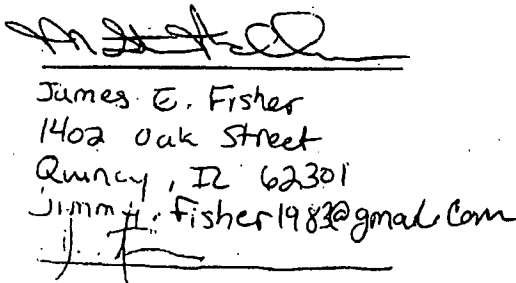 James E. Fisher
1402 Oak Street
Quincy, IL 62301
jimmy.fisher1983@gmail.com
J F